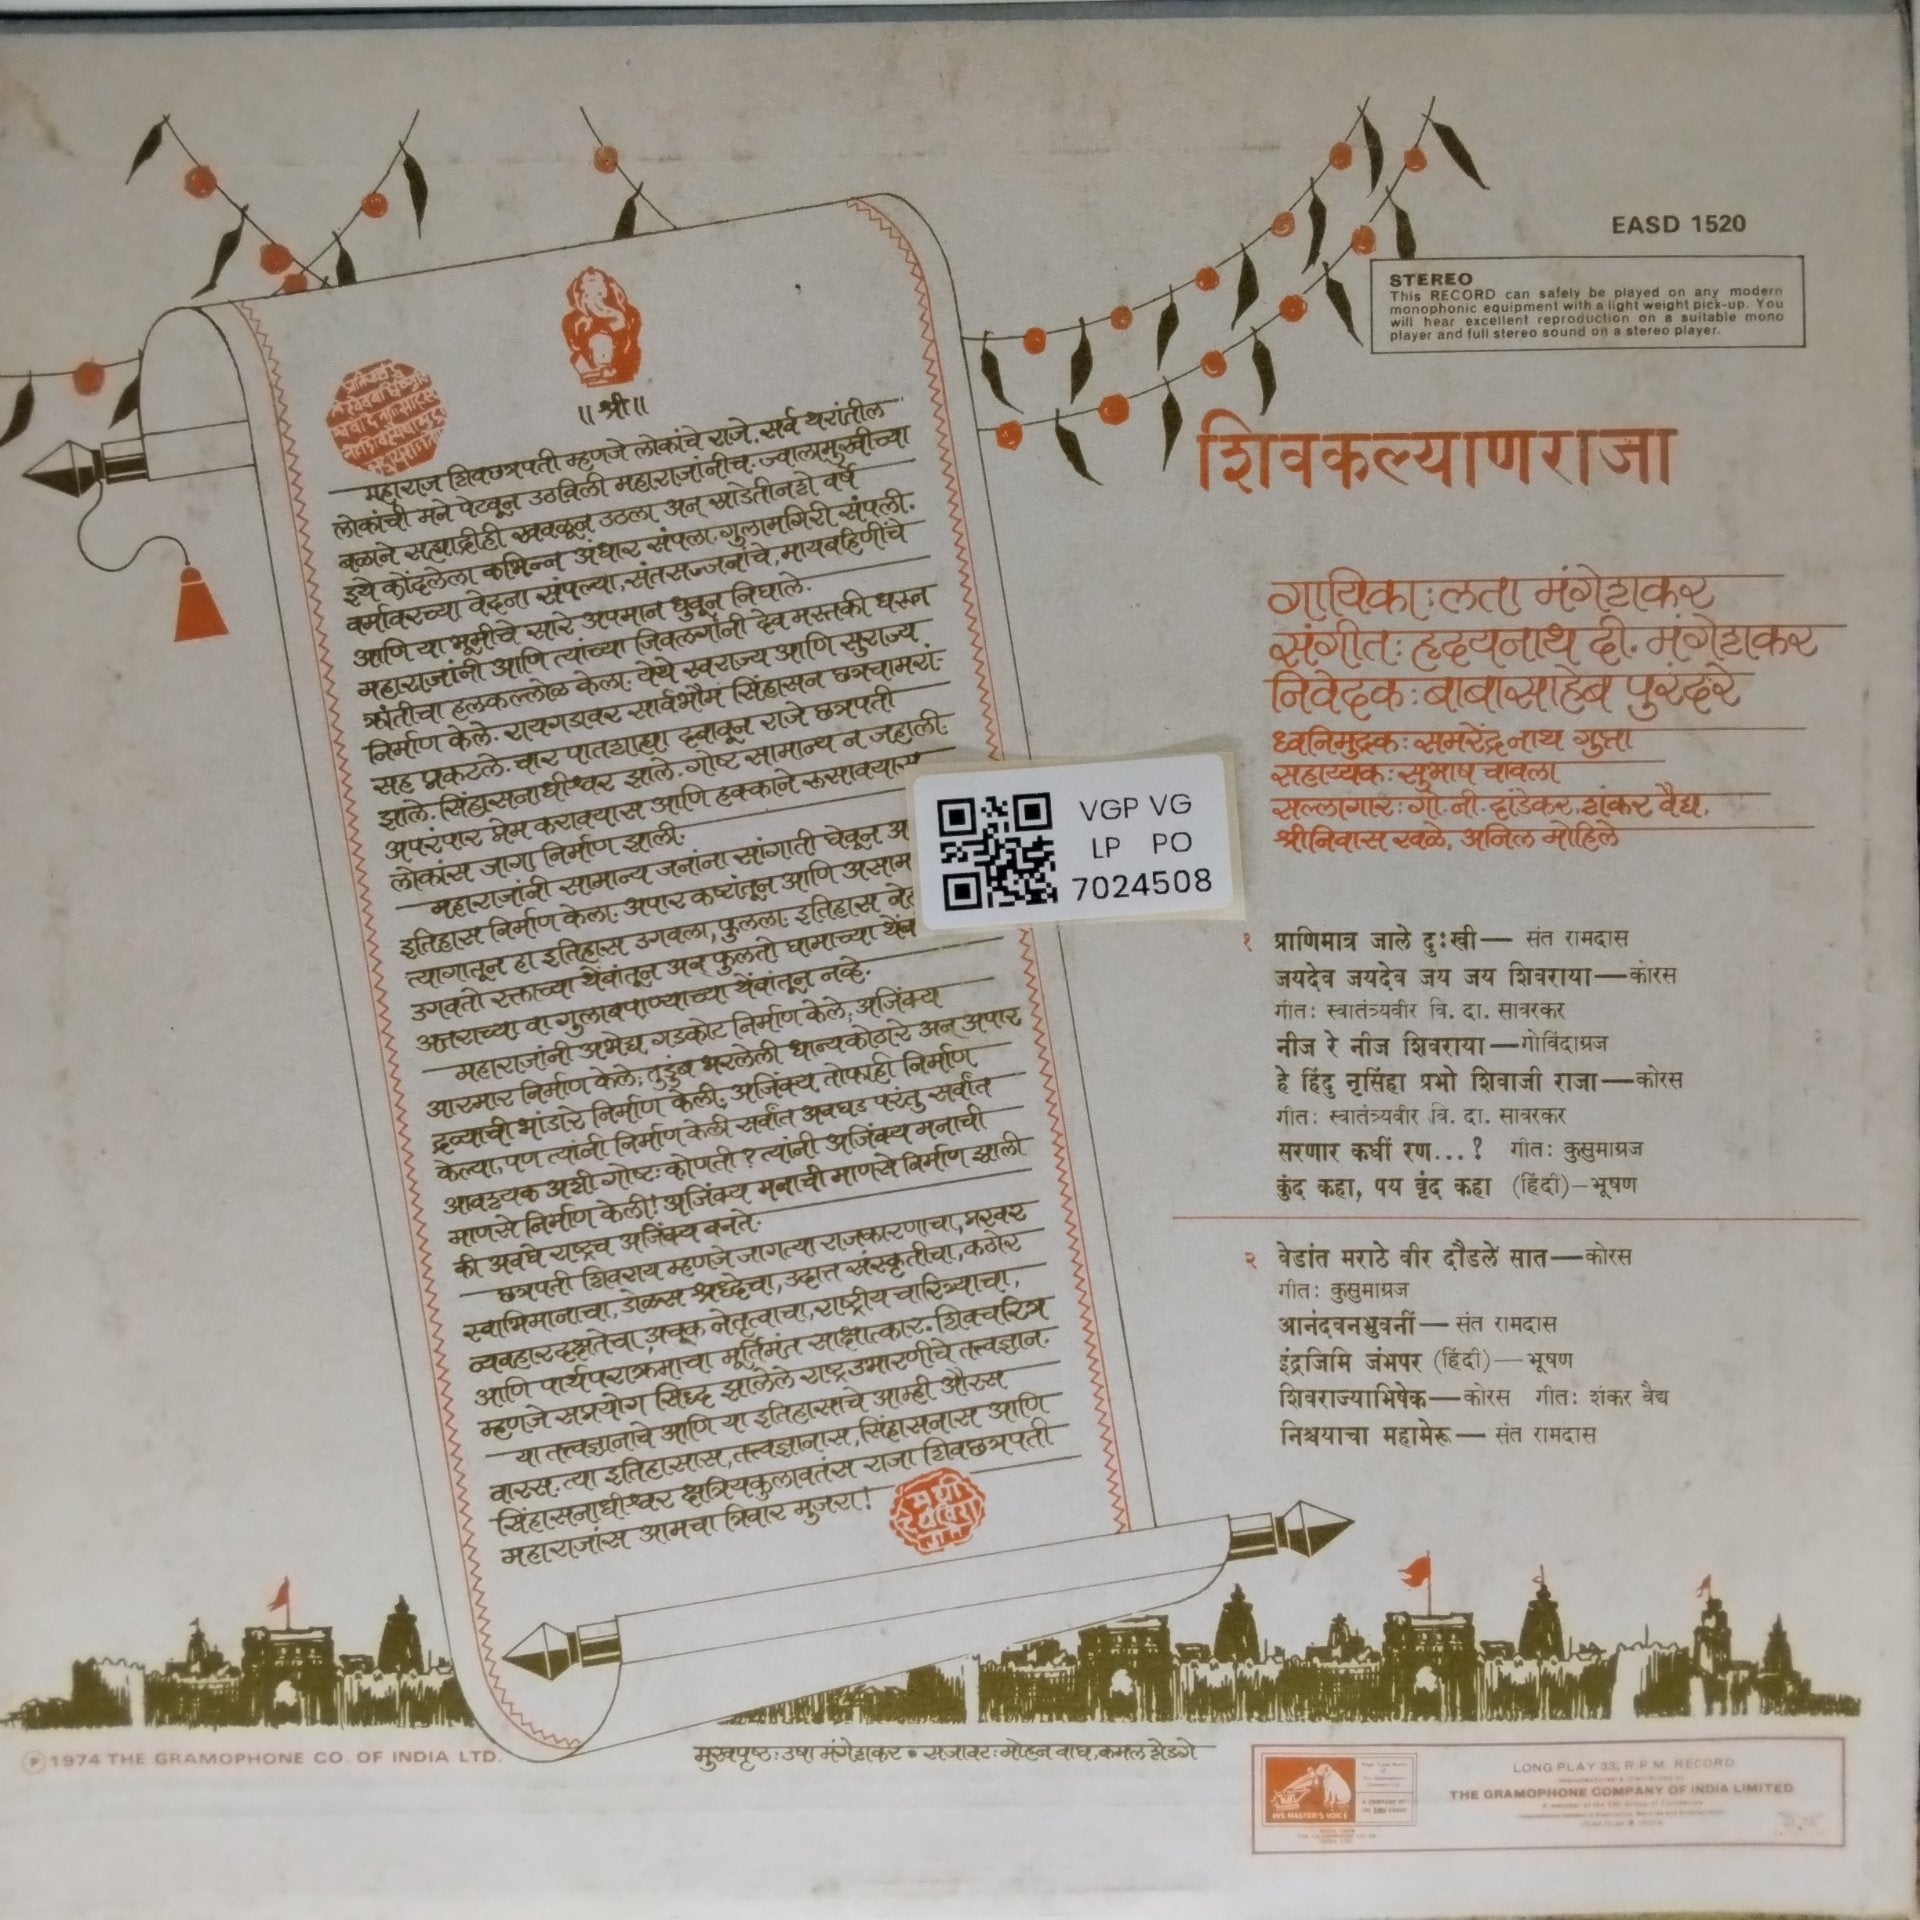 EASD 1520
STEREO
This RECORD can safely be played on any modern
monophonic equipment with a light weight pick-up. You
will hear excellent reproduction on a suitable mono
player and full stereo sound on a stereo player.
॥ श्री ॥
महाराज शिवछत्रपती म्हणजे लोकांचे राजे. सर्व थरांतील
लोकांची मने पेटवून उठविली महाराजांनीच. ज्वालामुखीच्या
बळाने सह्याद्रीही खवळून उठला अन् साडेतीनशे वर्षे
इथे कोंदलेला कभिन्न अंधार संपला. गुलामगिरी संपली.
वर्मावरच्या वेदना संपल्या, संतसज्जनांचे, मायबहिणींचे
आणि या भूमीचे सारे अपमान धुवून निघाले.
महाराजांनी आणि त्यांच्या जिवलगांनी देव मस्तकी धरून
क्रांतीचा हलकल्लोळ केला. येथे स्वराज्य आणि सुराज्य
निर्माण केले. रायगडावर सार्वभौम सिंहासन छत्रचामरां-
सह प्रकटले. चार पातशाह्या दबावून राजे छत्रपती
झाले. सिंहासनाधीश्वर झाले. गोष्ट सामान्य न जहाली.
अपरंपार प्रेम करावयास आणि हक्काने रूसावयास
लोकांस जागा निर्माण झाली.
महाराजांनी सामान्य जनांना सांगाती घेवून अ
इतिहास निर्माण केला. अपार कष्टांतून आणि असाम
त्यागातून हा इतिहास उगवला, फुलला. इतिहास ने
उगवतो रक्ताच्या थेंबांतून अन् फुलतो घामाच्या थेंब
अत्तराच्या वा गुलाबपाण्याच्या थेंबांतून नव्हे.
महाराजांनी अभेद्य गडकोट निर्माण केले, अजिंक्य
आरमार निर्माण केले, तुडुंब भरलेली धान्यकोठारे अन् अपार
द्रव्याची भांडारे निर्माण केली. अजिंक्य तोफाही निर्माण
केल्या, पण त्यांनी निर्माण केली सर्वांत अवघड परंतु सर्वांत
आवश्यक अशी गोष्ट: कोणती? त्यांनी अजिंक्य मनाची
माणसे निर्माण केली! अजिंक्य मनाची माणसे निर्माण झाली
की अवघे राष्ट्रच अजिंक्य बनते.
छत्रपती शिवराय म्हणजे जागत्या राजकारणाचा, प्रखर
स्वाभिमानाचा, डोळस श्रध्देचा, उदात्त संस्कृतीचा, कठोर
व्यवहारदक्षतेचा, अचूक नेतृत्वाचा, राष्ट्रीय चारित्र्याचा,
आणि पार्थपराक्रमाचा मूर्तिमंत साक्षात्कार. शिवचरित्र
म्हणजे सप्रयोग सिध्द झालेले राष्ट्रउभारणीचे तत्त्वज्ञान.
या तत्त्वज्ञानाचे आणि या इतिहासाचे आम्ही औरस
वारस. त्या इतिहासास, तत्त्वज्ञानास, सिंहासनास आणि
सिंहासनाधीश्वर क्षत्रियकुलावतंस राजा शिवछत्रपती
महाराजांस आमचा त्रिवार मुजरा!
शिवकल्याणराजा
गायिका: लता मंगेशकर
संगीत: हृदयनाथ दी. मंगेशकर
निवेदक: बाबासाहेब पुरंदरे
ध्वनिमुद्रक: समरेंद्रनाथ गुप्ता
सहाय्यक: सुभाष चावला
सल्लागार: गो. नी. दांडेकर, शंकर वैद्य,
श्रीनिवास खळे, अनिल मोहिले
VGP VG
LP PO
7024508
१ प्राणिमात्र जाले दुःखी — संत रामदास
जयदेव जयदेव जय जय शिवराया — कोरस
गीत: स्वातंत्र्यवीर वि. दा. सावरकर
नीज रे नीज शिवराया — गोविंदाग्रज
हे हिंदु नृसिंहा प्रभो शिवाजी राजा — कोरस
गीत: स्वातंत्र्यवीर वि. दा. सावरकर
सरणार कधीं रण...? गीत: कुसुमाग्रज
कुंद कहा, पय वृंद कहा (हिंदी) – भूषण
२ वेडांत मराठे वीर दौडले सात — कोरस
गीत: कुसुमाग्रज
आनंदवनभुवनीं — संत रामदास
इंद्रजिमि जंभपर (हिंदी) — भूषण
शिवराज्याभिषेक — कोरस गीत: शंकर वैद्य
निश्चयाचा महामेरू — संत रामदास
Ⓟ 1974 THE GRAMOPHONE CO. OF INDIA LTD.
मुखपृष्ठ: उषा मंगेशकर • सजावट: मोहन वाघ, कमल शेडगे
HIS MASTER'S VOICE
LONG PLAY 33⅓ R.P.M. RECORD
THE GRAMOPHONE COMPANY OF INDIA LIMITED